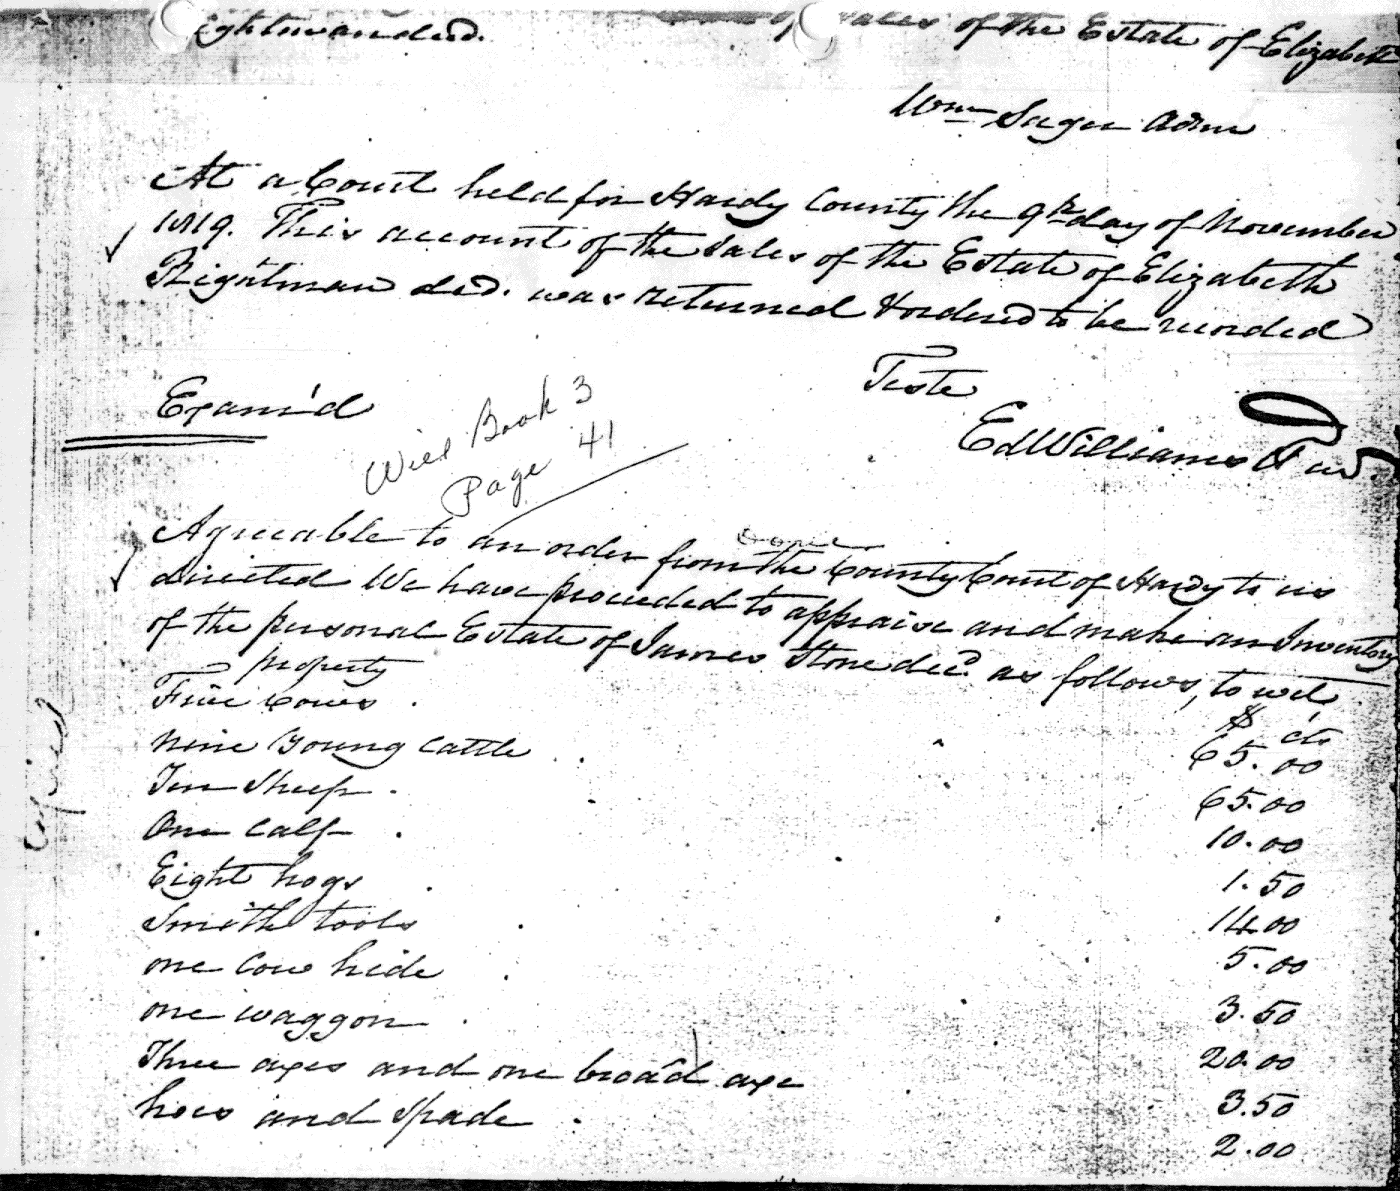 ightman decd. of Sales of the Estate of Elizabeth
Wm Sager Admr
At a Court held for Hardy County the 9th day of November
1819. This account of the Sales of the Estate of Elizabeth
Rightman decd. was returned & ordered to be recorded
Teste
Exam'd
Ed Williams
Will Book 3
Page 41
Agreeable to an order from the County Court of Hardy to us
directed We have proceeded to appraise and make an Inventory
of the personal Estate of James Stone decd. as follows, to wit
property
$ cts
Five Cows . 65.00
Nine Young Cattle . 65.00
Ten Sheep . 10.00
One Calf . 1.50
Eight hogs . 14.00
Smith tools . 5.00
one Cow hide . 3.50
one waggon . 20.00
Three axes and one broad axe 3.50
hoes and Spade . 2.00